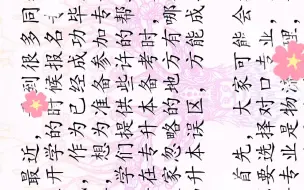 最近，到很多同
开学的时候报名
作为已经成功毕
想为准备参加专
学们提供些许的帮
在专升本备考时，
家忽略的地方有哪
升本误区，方能成
首先，大家可能会
要选择对口专业，
专业是物流